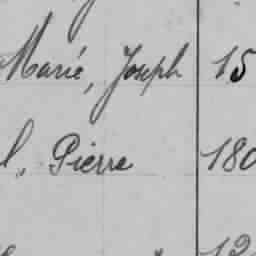 Marié, Joseph 15
l, Pierre 180
12